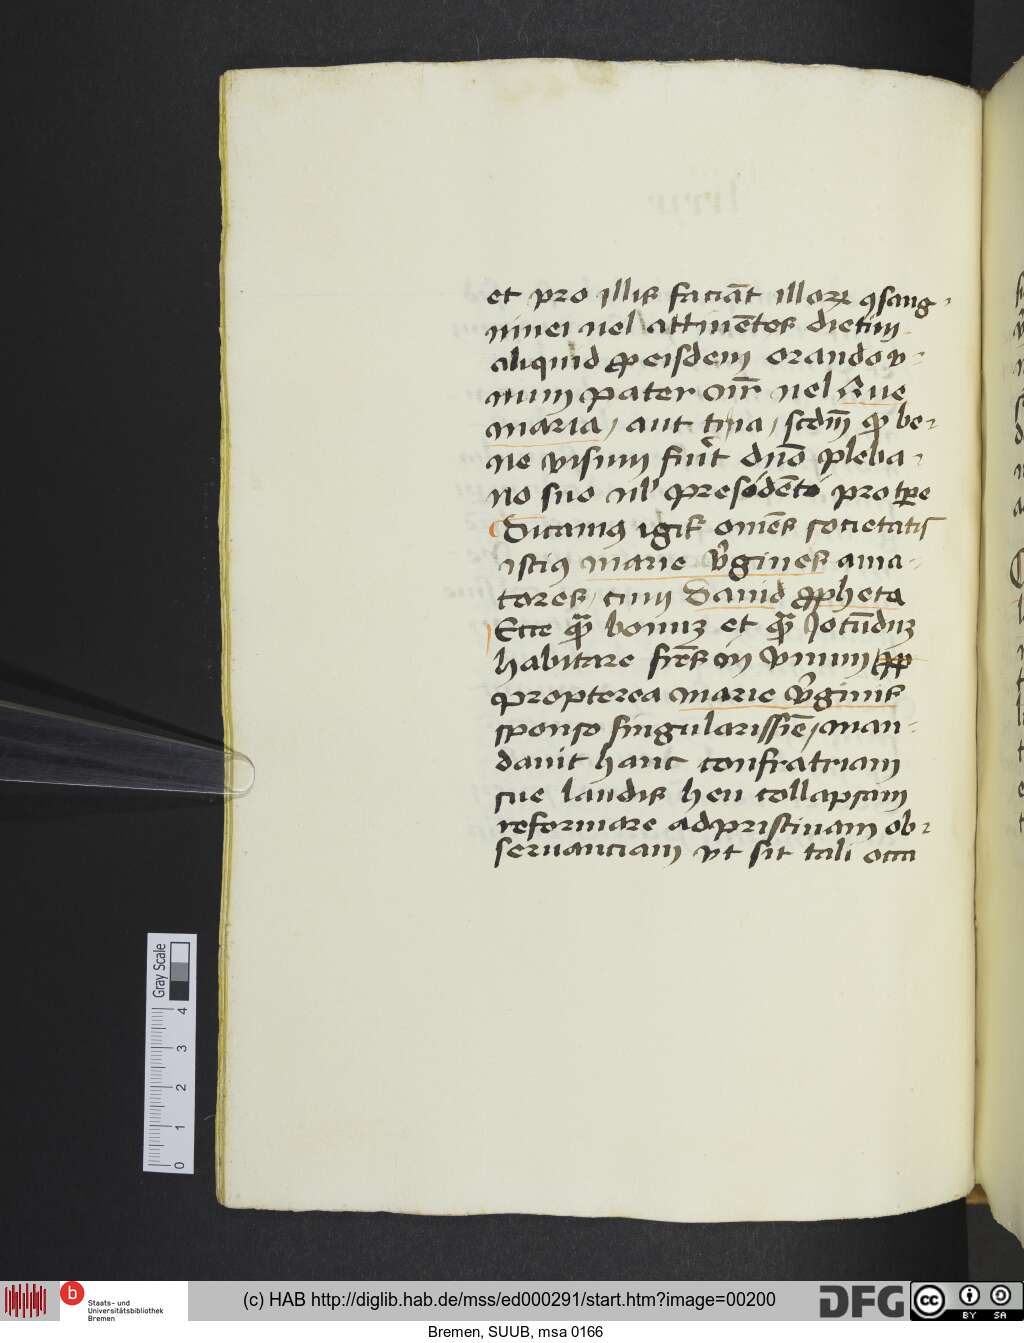 et pro illis faciāt illoꝝ ꝯsang-
uinei uel attinētes dietim
aliquid ꝓ eisdem orando v-
num pater nr̄ uel Aue
maria, aut tria, scdm̄ ꝙ be-
ne visum fuīt dn̄o pleba-
no suo uł presidēti pro tꝑe
Dicamꝰ igit͛ omēs societatis
istiꝰ marie v̾gines ama-
tores, cum Dauid ꝓpheta
Ecce qͣ̄ bonuꝫ et qͣ̄ Jocūduꝫ
habitare frēs in vnum
propterea marie v̾ginis
sponso singularissīe, man-
dauit hanc confratriam
sue laudis heu collapsam
reformare ad pristinam ob-
seruanciam vt sit tali occa
Gray Scale
4
3
2
1
0
b
Staats- und
Universitätsbibliothek
Bremen
(c) HAB http://diglib.hab.de/mss/ed000291/start.htm?image=00200
DFG
cc
BY SA
Bremen, SUUB, msa 0166